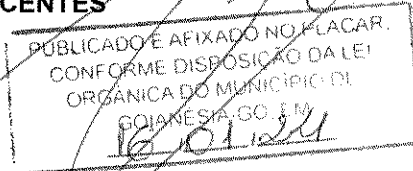 CENTES
PUBLICADO E AFIXADO NO PLACAR,
CONFORME DISPOSIÇÃO DA LEI
ORGÂNICA DO MUNICÍPIO DE
GOIANÉSIA-GO. EM
16.01.24